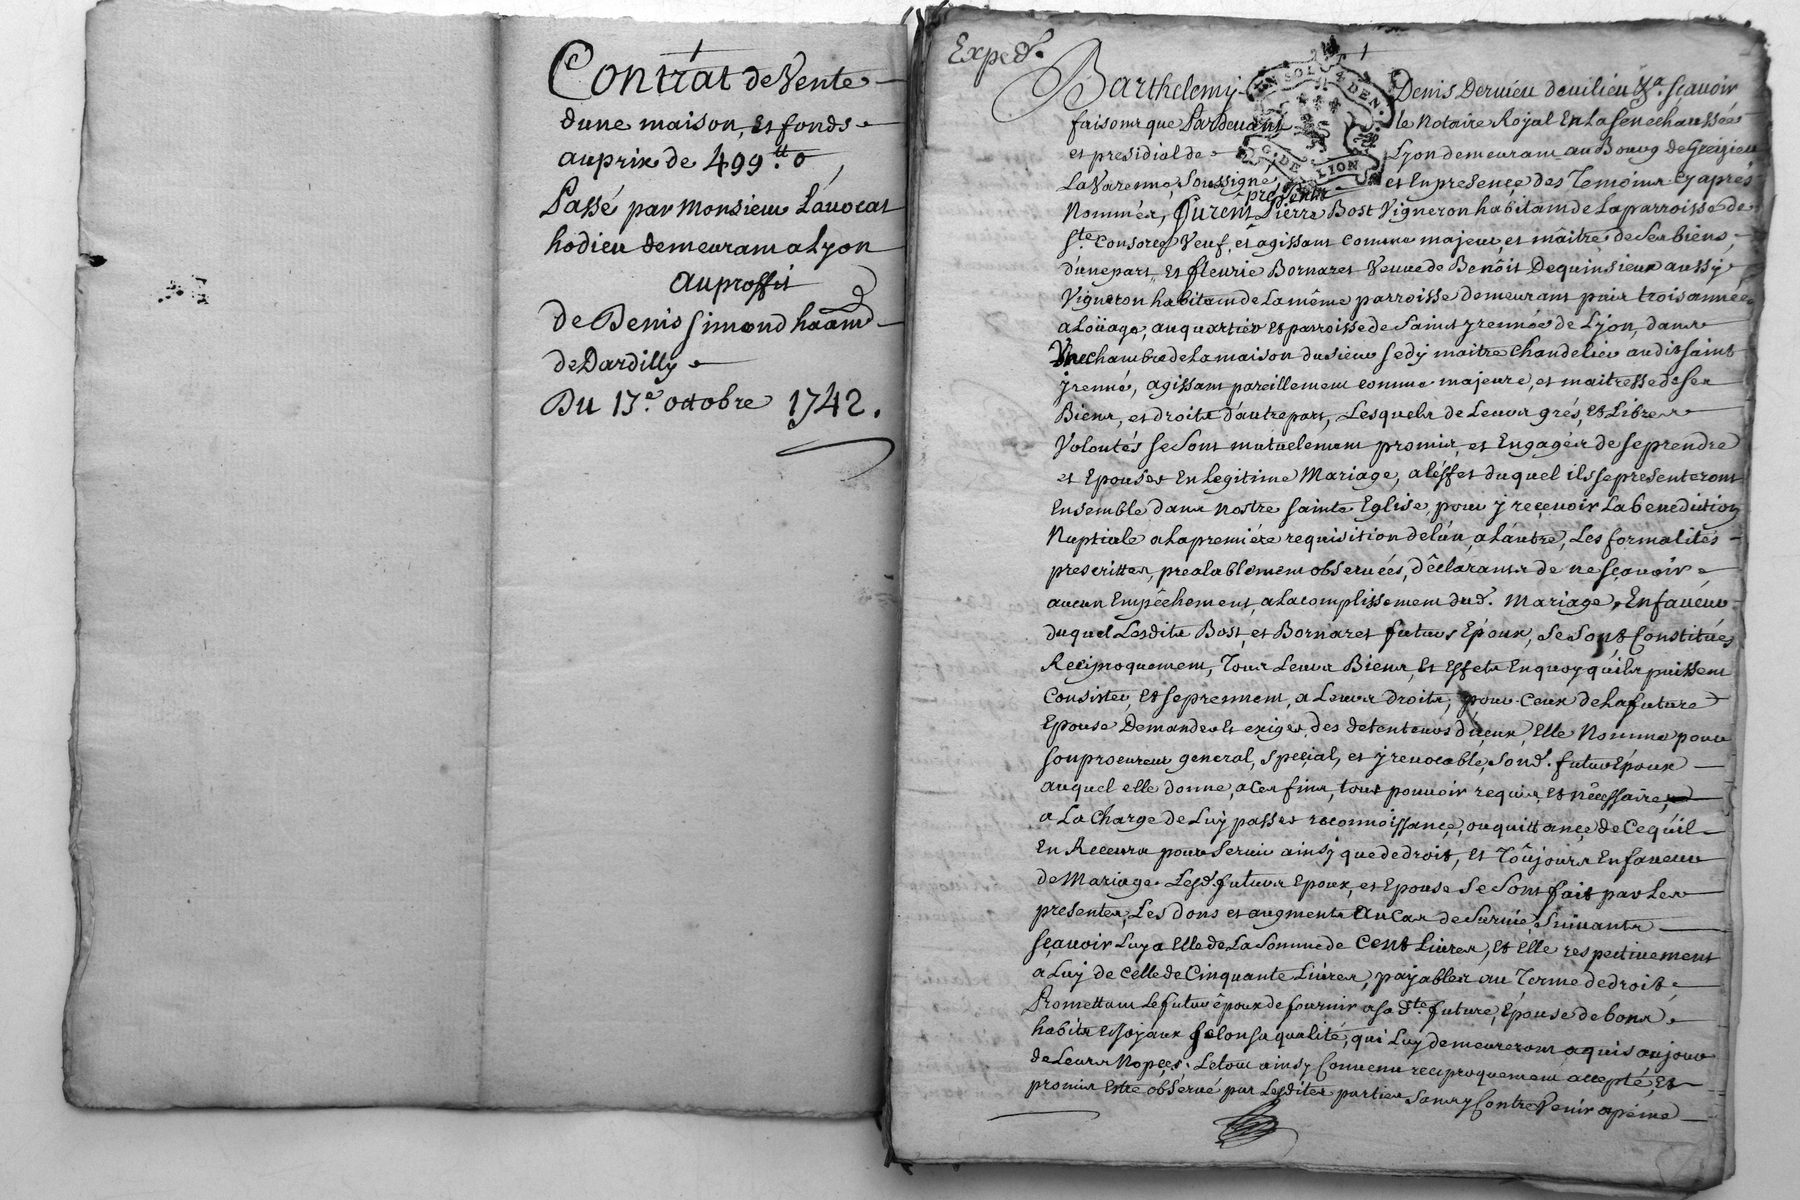 Contrat de Vente
dune maison, et fonds
au prix de 499.tt 0
Passé par Monsieur Lavocat
hodieu demeurant a Lyon
au proffit
de Denis Simond haant
de Dardilly
Du 13.e octobre 1742.
Exped.
Barthelemy Denis Dervieu de vilieu &a. sçavoir
faisons que Pardevant le Notaire Royal En La Senechaussée
et presidial de Lyon demeurant au Bourg de Greizieu
La Varenne, Soussigné, et En presence des Temoins Cy aprés
presents
Nommés, Furent Pierre Bost Vigneron habitant de La parroisse de
Ste. Consorce Veuf, et agissant comme majeur, et maître de Ses biens,
d'une part, Et fleurie Bornaret Veuve de Benôit Dequinsieux aussÿ
Vigneron habitant de La même parroisse demeurant puis trois années
a Loüage, au quartier Et parroisse de Saint jrennée de Lÿon, dans
Une chambre de La maison du sieur Sedÿ maitre Chandelier audit Saint
jrenné, agissant pareillement comme majeure, et maitresse de Ses
Biens, et droits d'autre part, Lesquels de Leurs grés, Et Libres
Volontés Se Sont mutuelement promis, et Engagés de Se prendre
et Epouser En Legitime Mariage, a L'éffet duquel ils se presenteront
Ensemble dans Nostre Sainte Eglise, pour ÿ reçevoir La benediction
Nuptiale a La premiére requisition de L'un, a L'autre, Les formalités
prescrittes, prealablement observées, dêclarants de ne Sçavoir
aucun Empêchement, a L'acomplissement dud. Mariage, En faveur
duquel Lesdits Bost, et Bornaret futurs Epoux, Se Sont Constitués
Reciproquement, Tous Leurs Biens, Et Effets En quoy qu'ils puissent
Consister, Et Se prennent, a Leurs droits, pour Ceux de La future
Epouse Demander Et exiger des detenteurs d'iceux, Elle Nomme pour
Son procureur general, Speçial, et jrrevocable, Sond. futur Epoux
auquel elle donne, a Ces fins, tout pouvoir requis, Et nêcessaire,
a La Charge de Luÿ passer reconnoissançe, ou quittançe de Ce qu'il
En Recevra pour Servir ainsÿ que de droit, Et Toûjours En faveur
de Mariage. Lesd. futurs Epoux, et Epouse Se Sont fait par Les
presentes, Les dons et augments Au Cas de Survie, Suivants
Sçavoir Luy a Elle de La Somme de Cent Livres, Et Elle respectivement
a Luÿ de Celle de Cinquante Livres, payables au Terme de droit,
Promettant Le futur êpoux de fournir a sa dte. future Epouse de bons
habits Et joÿaux Selon sa qualité, qui Luÿ demeureront aquis au jour
de Leurs Nopçes. Le tout ainsÿ Convenu reciproquement accepté, Et
promis Estre obServé par Lesdites parties Sans ÿ ContreVenir a peine